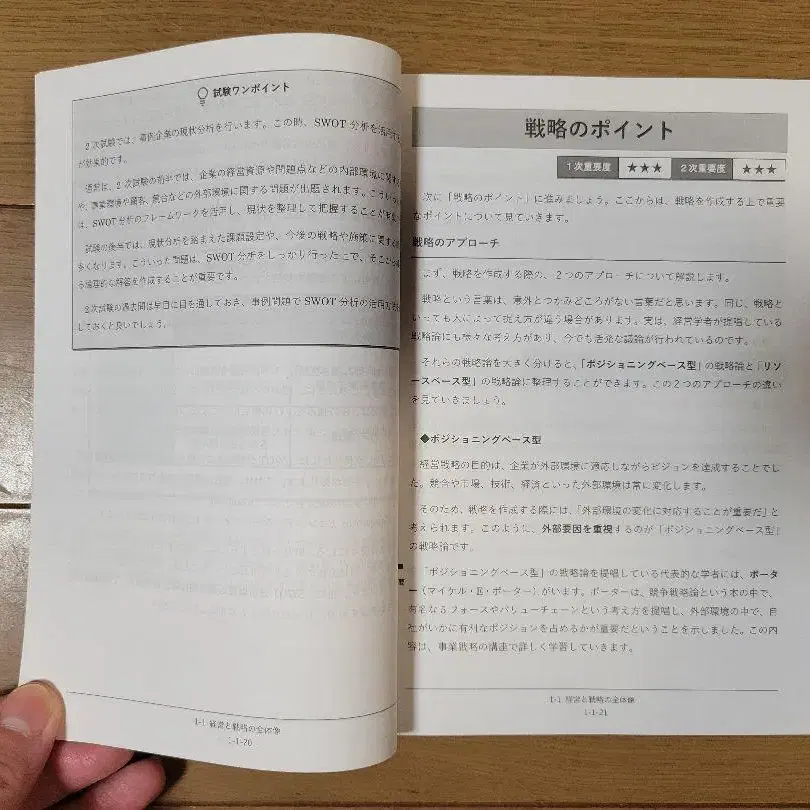 試験ワンポイント
2次試験では、事例企業の現状分析を行います。この時、SWOT 分析を活用す
が効果的です。
通常は、2次試験の前半では、企業の経営資源や問題点などの内部環境に関す
や、事業環境や顧客、競合などの外部環境に関する問題が出題されます。こういっ
は、SWOT分析のフレームワークを活用し、現状を整理して把握することが
試験の後半では、現状分析を踏まえた課題設定や、今後の戦略や施策に関する
多くなります。こういった問題は、SWOT 分析をしっかり行った上で、そこから
る論理的な解答を作成することが重要です。
2次試験の過去問は早目に目を通しておき、事例問題で SWOT 分析の活用
しておくと良いでしょう。
1-1 経営と戦略の全体像
1-1-20
戦略のポイント
1次重要度 ★★★ 2次重要度 ★★★
次に「戦略のポイント」に進みましょう。ここからは、戦略を作成する上で重要
なポイントについて見ていきます。
戦略のアプローチ
まず、戦略を作成する際の、2つのアプローチについて解説します。
戦略という言葉は、意外とつかみどころがない言葉だと思います。同じ、戦略と
いっても人によって捉え方が違う場合があります。実は、経営学者が提唱している
戦略論にも様々な考え方があり、今でも活発な議論が行われているのです。
それらの戦略論を大きく分けると、「ポジショニングベース型」の戦略論と「リソ
ースベース型」の戦略論に整理することができます。この2つのアプローチの違い
を見ていきましょう。
◆ポジショニングベース型
経営戦略の目的は、企業が外部環境に適応しながらビジョンを達成することでし
た。競合や市場、技術、経済といった外部環境は常に変化します。
そのため、戦略を作成する際には、「外部環境の変化に対応することが重要だ」と
考えられます。このように、外部要因を重視するのが「ポジショニングベース型」
の戦略論です。
「ポジショニングベース型」の戦略論を提唱している代表的な学者には、ポータ
ー（マイケル・E・ポーター）がいます。ポーターは、競争戦略論という本の中で、
有名な5フォースやバリューチェーンという考え方を提唱し、外部環境の中で、自
社がいかに有利なポジションを占めるかが重要だということを示しました。この内
容は、事業戦略の講座で詳しく学習していきます。
1-1 経営と戦略の全体像
1-1-21